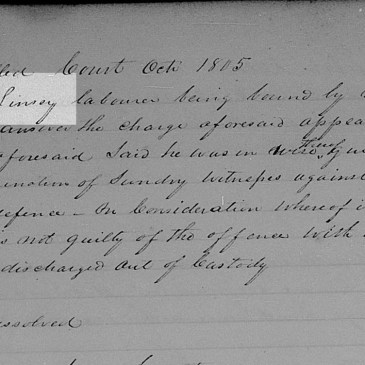 led Court Octr 1805
Linsey labourer being bound by
answer the charge aforesaid appea
aforesaid Said he was in
ination of Sundry Witnesses against
defence - On Consideration whereof i
s not guilty of the offence with
discharged out of Custody
essolved